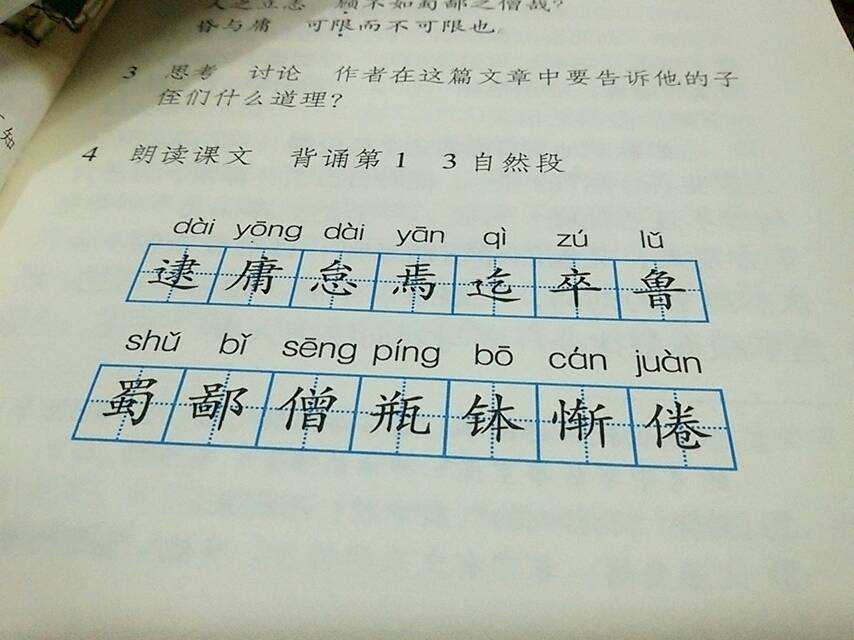 人之立志 顾不如蜀鄙之僧哉?
昏与庸 可限而不可限也。
3 思考 讨论 作者在这篇文章中要告诉他的子
侄们什么道理?
4 朗读课文 背诵第1 3自然段
dài yōng dài yān qì zú lǔ
逮庸怠焉迄卒鲁
shǔ bǐ sēng píng bō cán juàn
蜀鄙僧瓶钵惭倦